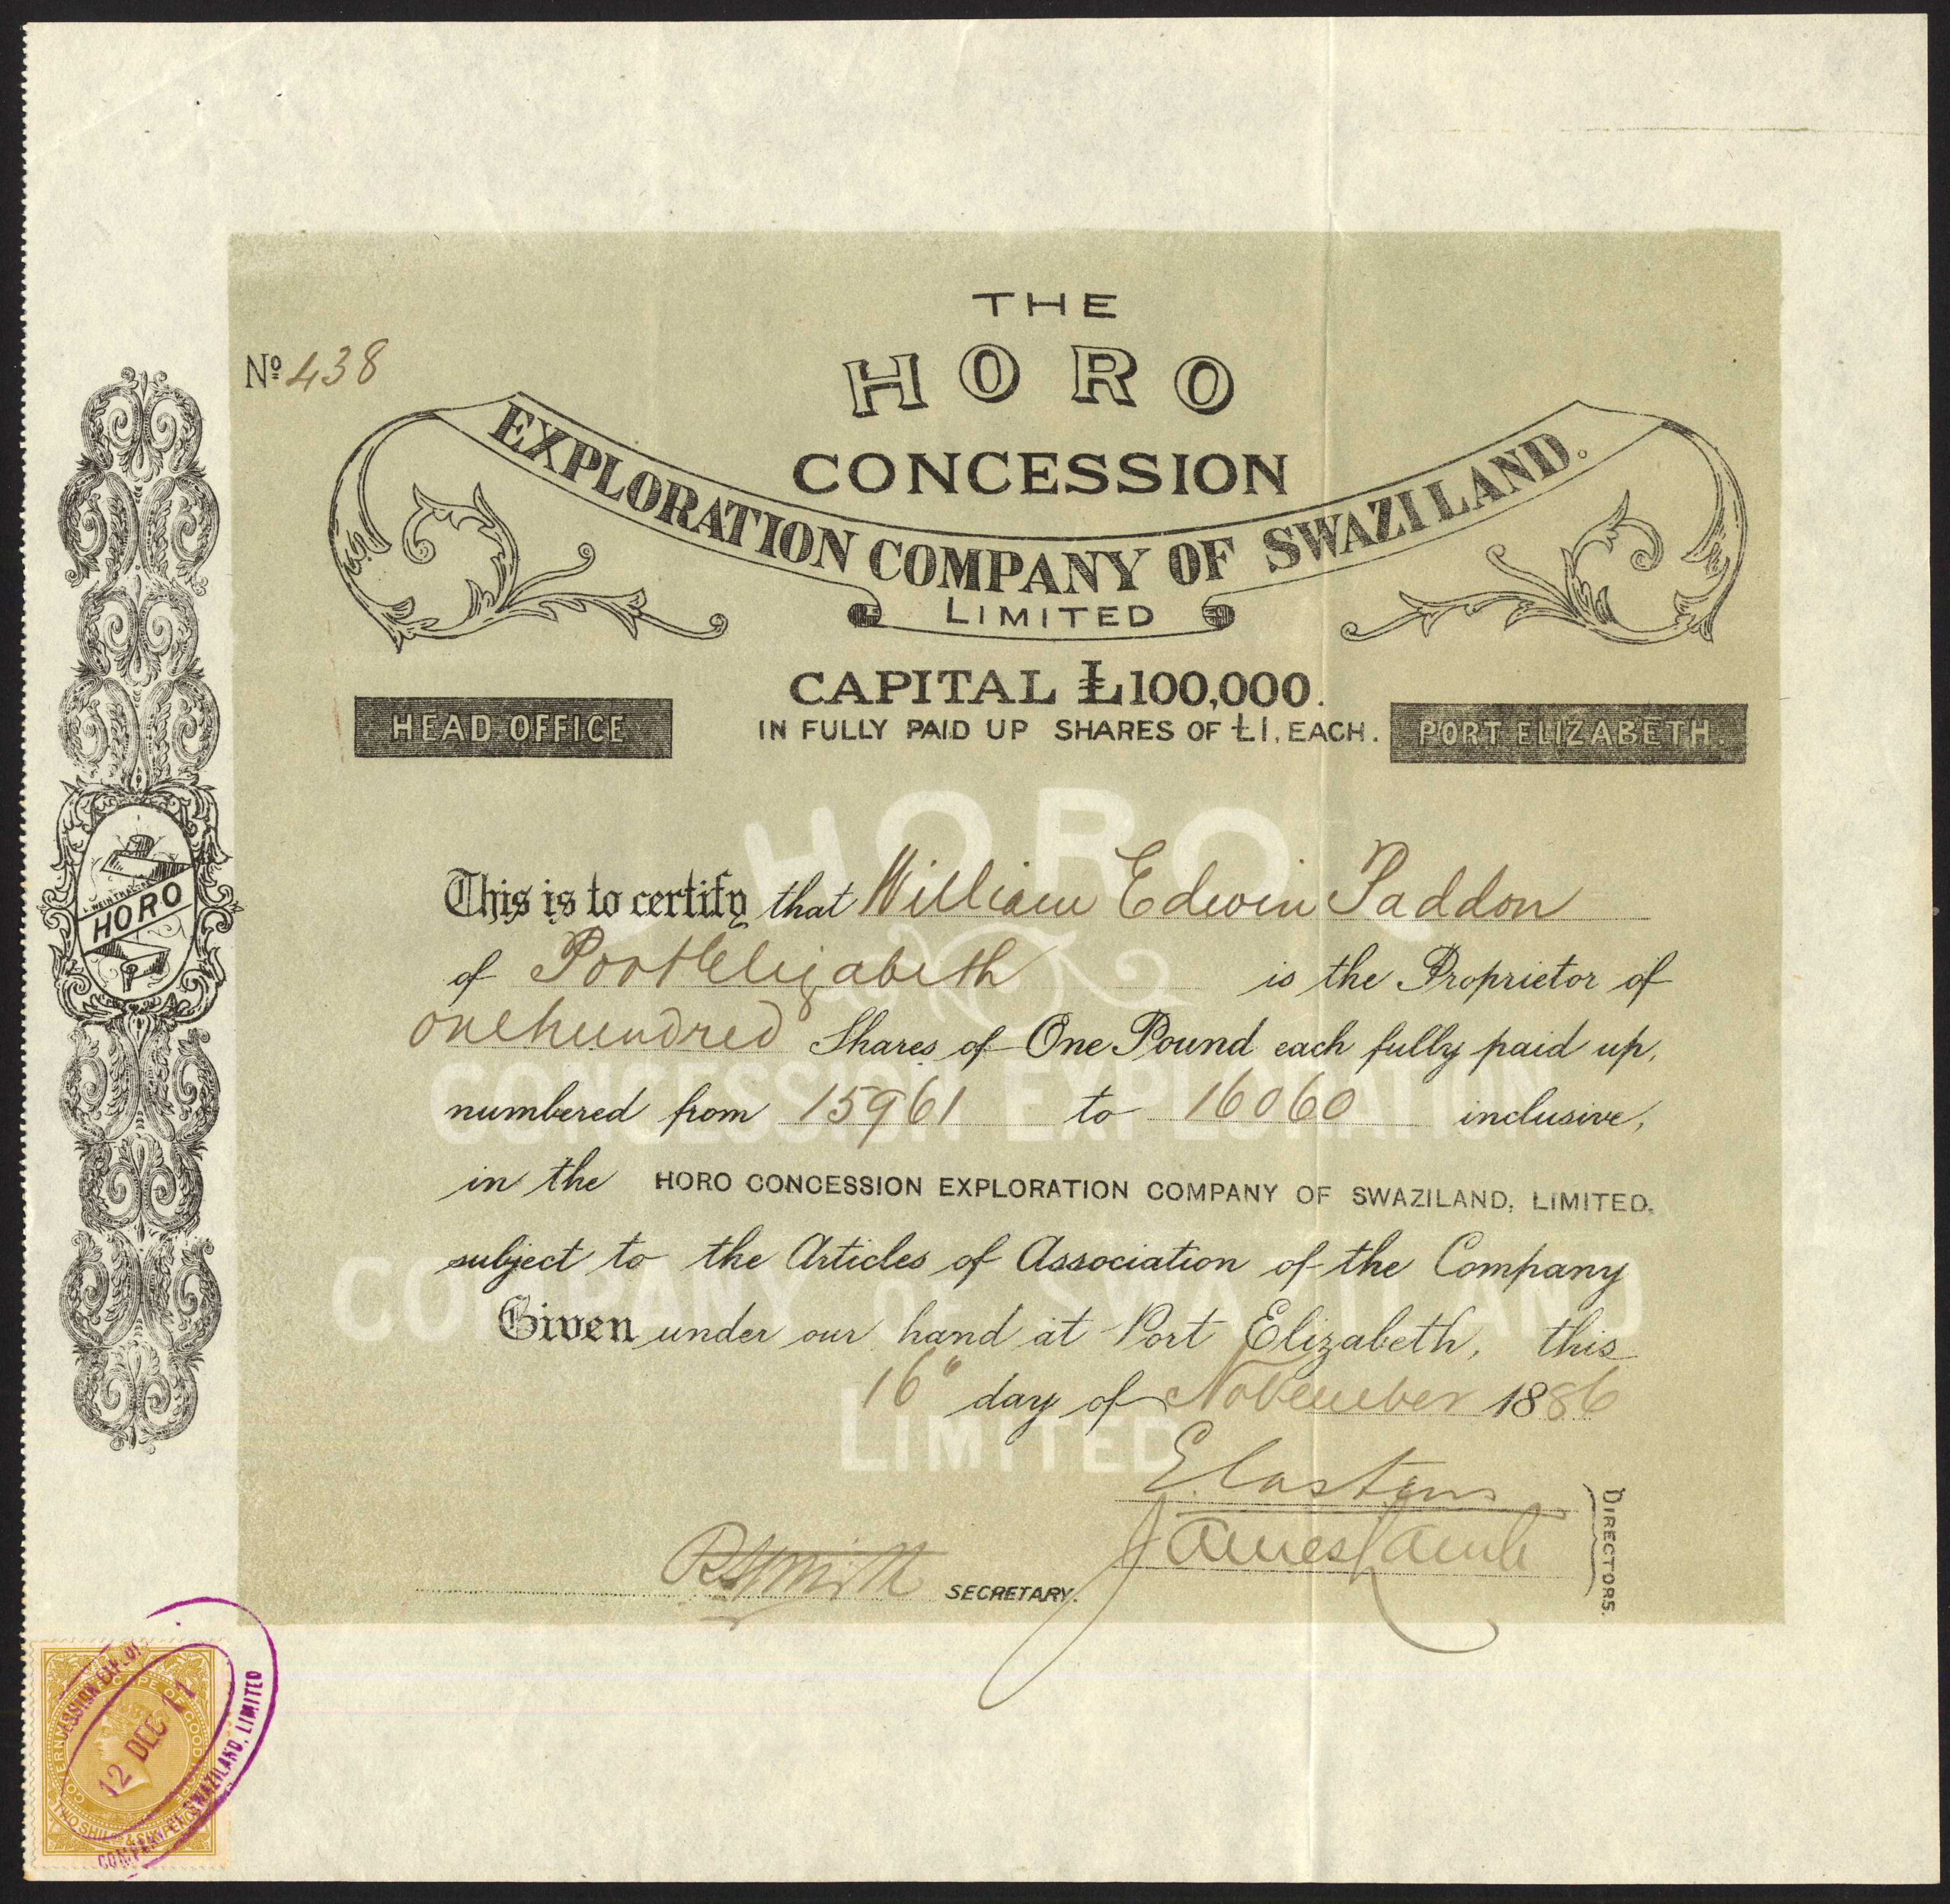 THE
HORO
CONCESSION
EXPLORATION COMPANY OF SWAZILAND.
LIMITED
Nº 438
CAPITAL £100,000.
IN FULLY PAID UP SHARES OF £1, EACH.
HEAD OFFICE
PORT ELIZABETH.
HORO
This is to certify that William Edwin Paddon
of Port Elizabeth is the Proprietor of
one hundred Shares of One Pound each fully paid up,
numbered from 15961 to 16060 inclusive,
in the HORO CONCESSION EXPLORATION COMPANY OF SWAZILAND, LIMITED.
subject to the Articles of Association of the Company
Given under our hand at Port Elizabeth, this
16" day of November 1886
HORO
CONCESSION EXPLORATION
COMPANY OF SWAZILAND
LIMITED
RSmith SECRETARY.
James
DIRECTORS.
CAPE OF GOOD
TWO SHILL
12 DEC 11
SWAZILAND, LIMITED